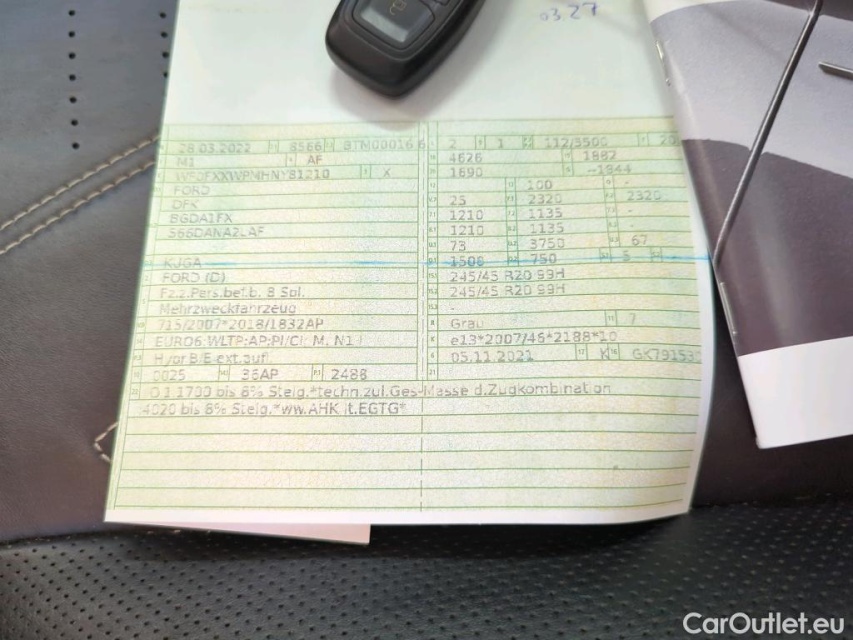 03.27
28.03.2022 8566 BTM00016 6 2 1 112/5500 20
M1 AF 4626 1882
X 1690 --1944
FORD 100 -
DFK 25 2320 2320
BGDA1FX 1210 1135 -
S66DANAZLAF 1210 1135 -
73 3750 67
KJGA 1508 750 5
FORD (D) 245/45 R20 99H
Fz.z.Pers.bef.b. 8 Spl. 245/45 R20 99H
Mehrzweckfahrzeug -
715/2007*2018/1832AP Grau 7
EURO6 WLTP;AP;PI/CI; M, N1 I e13*2007/46*2188*10
H/or B/E-ext.aufl 05.11.2021 K GK79153
0025 36AP 2488
O.1 1700 bis 8% Steig.*techn.zul.Ges-Masse d.Zugkombination
4020 bis 8% Steig.*ww.AHK lt.EGTG*
CarOutlet.eu